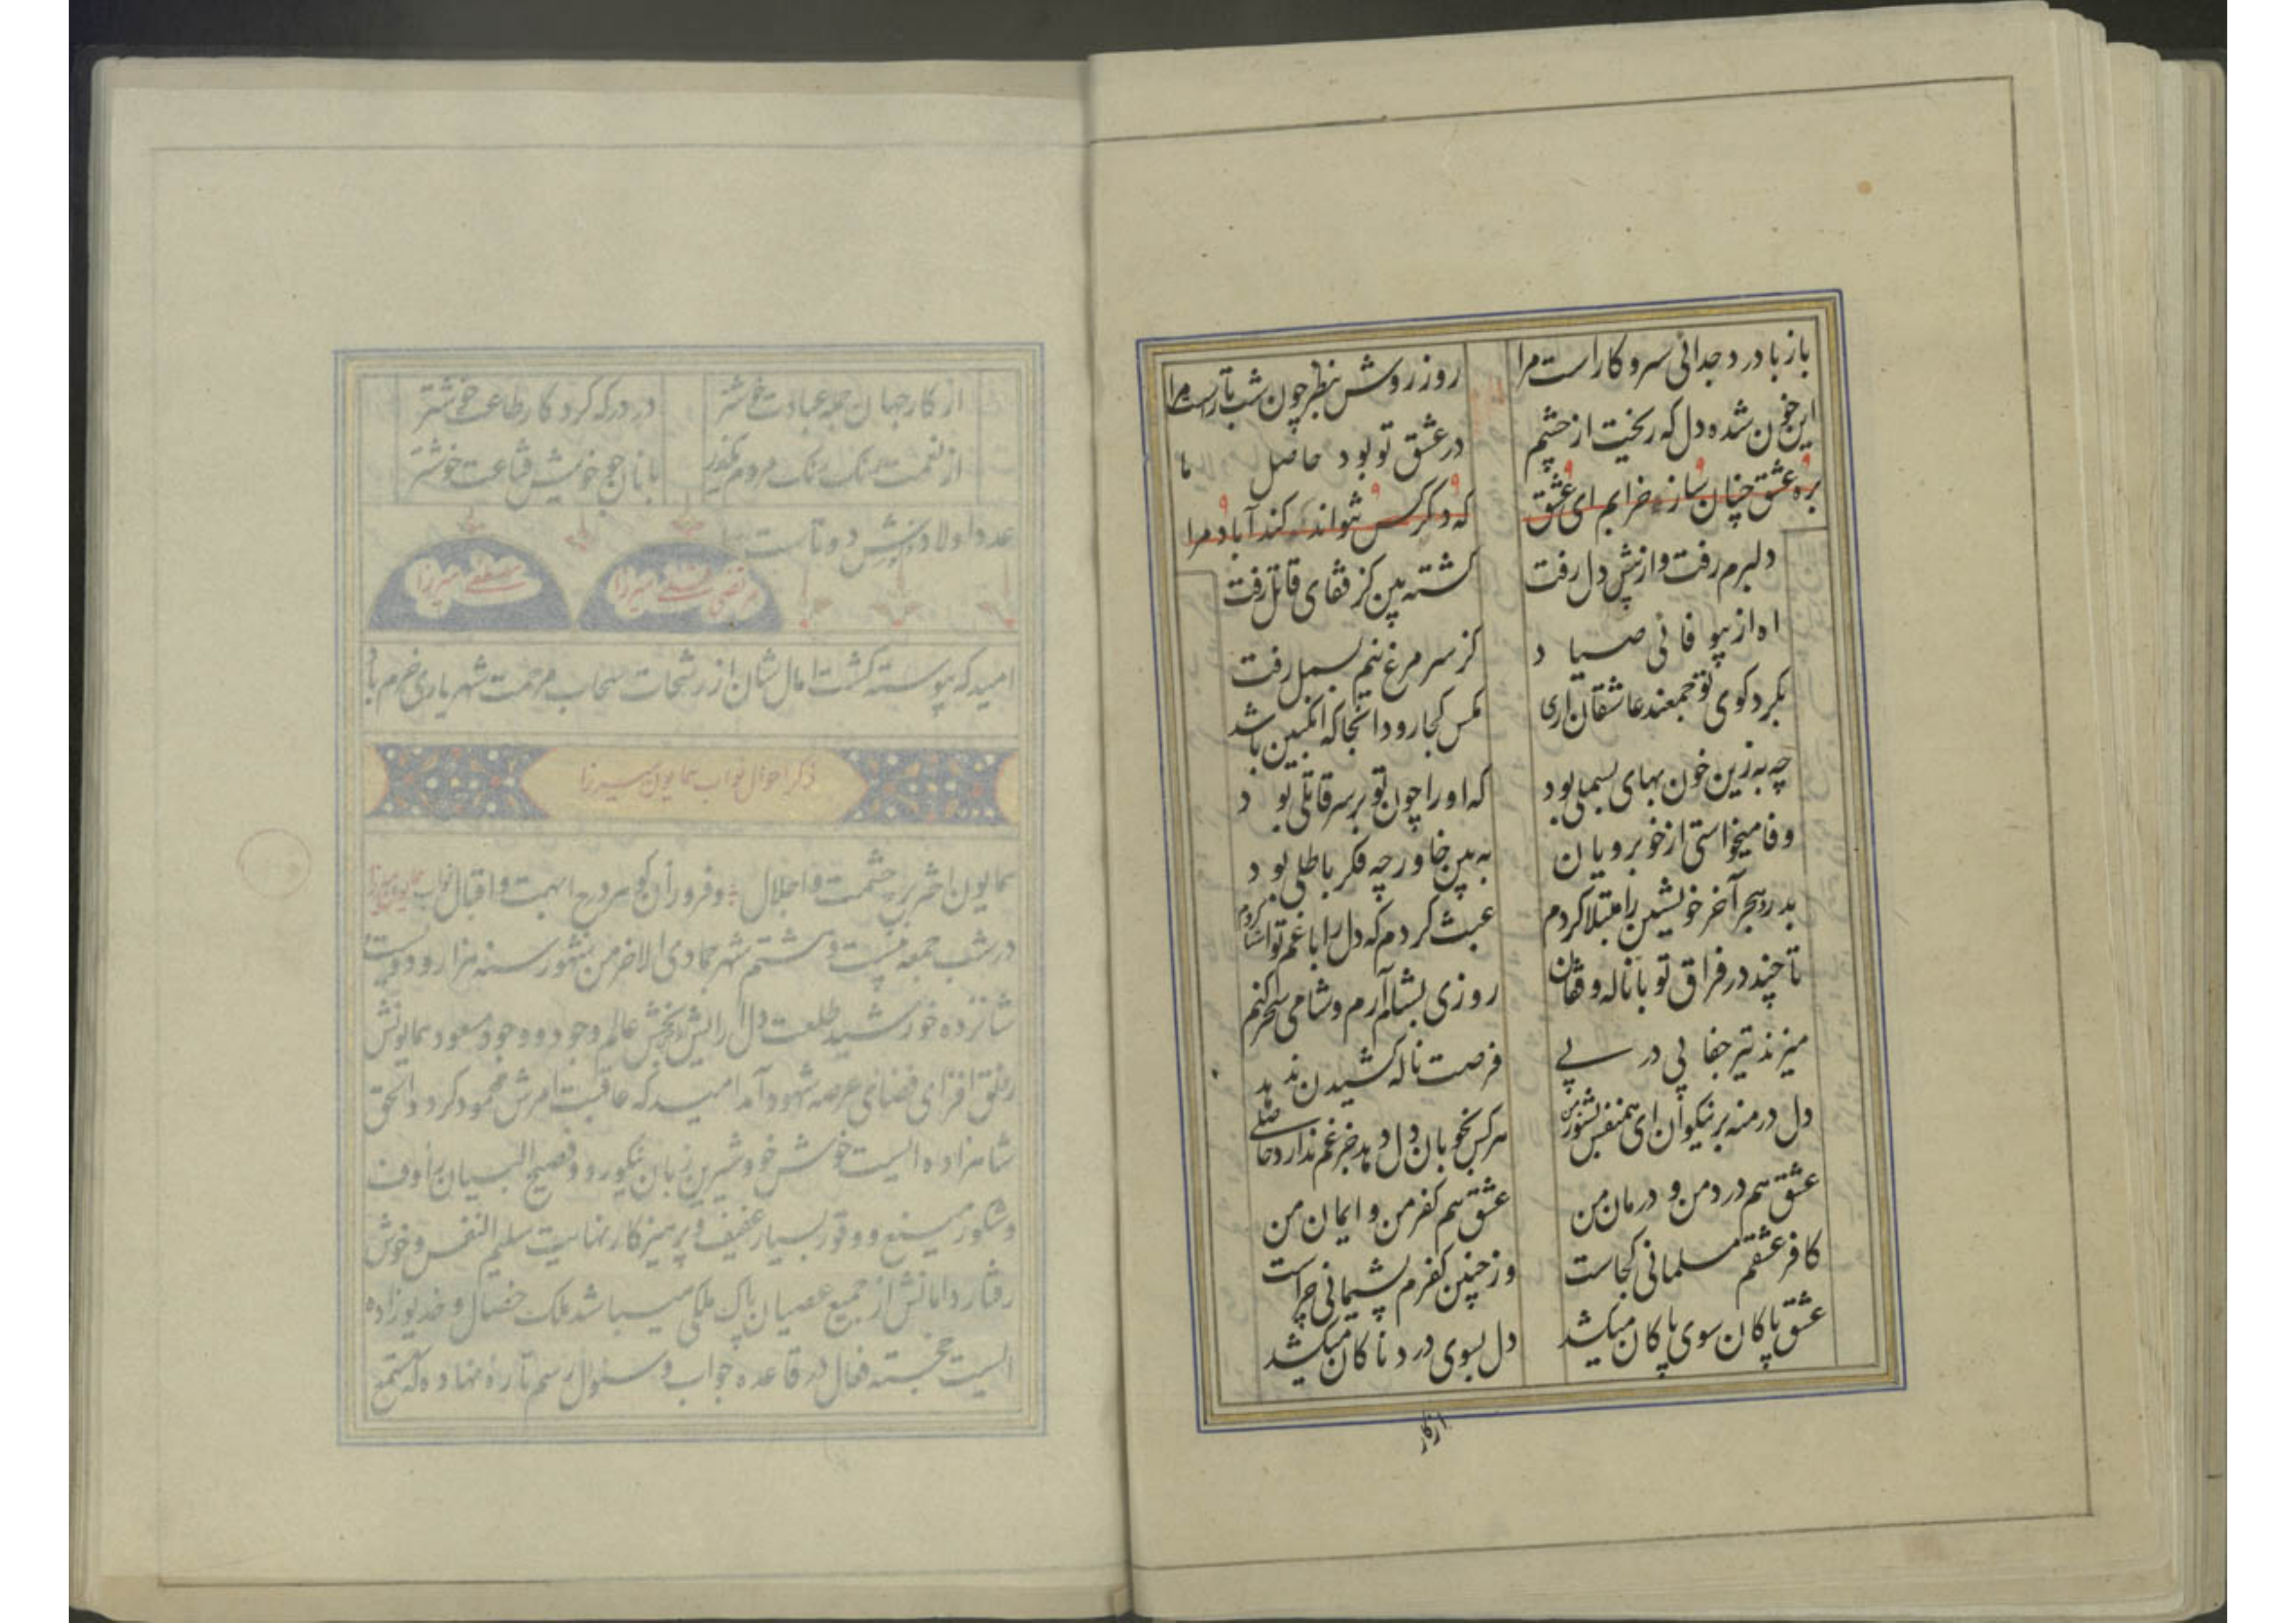 باز با درد جدائی سر و کار است مرا
روز روشن بنظر چون شب تار است مرا
این خون شده دل که ریخت از چشم
در عشق تو بود حاصل ما
بره عشق چنان ساز خرابم ای عشق
که دگر کس نتواند کند آباد مرا
دلبرم رفت و از پیش دل رفت
کشته بین کز قفای قاتل رفت
اه از بیوفائی صیاد
کز سر مرغ نیم بسمل رفت
بگرد کوی تو جمعند عاشقان اری
مگس کجا رود انجا که انگبین باشد
چه به زین خون بهای بسملی بود
که او را چون تو بر سر قاتلی بود
وفا میخواستی از خوبرویان
به بین خاور چه فکر باطلی بود
بدرد هجر آخر خویشتن را مبتلا کردم
عبث کردم که دل را با غم تو اشنا کردم
تا چند در فراق تو با ناله و فغان
روزی بشام آرم و شامی سحر کنم
میزند تیر جفا پی در پی
فرصت ناله کشیدن ندهد
دل در منه بر نیکوان ای همنفس بشنو ز من
هر کس بخوبان دل دهد جز غم ندارد حاصلی
عشق هم درد من و درمان من
عشق هم کفر من و ایمان من
کافر عشقم مسلمانی کجاست
وز چنین کفرم پشیمانی چراست
عشق پاکان سوی پاکان میکشد
دل بسوی دردناکان میکشد
از کار
از کار جهان جمله عبادت خوشتر
در درگه کردکار طاعت خوشتر
از نعمت مردم
با نان جو خویش قناعت خوشتر
عدد اولادش دو تاست
مرتضی قلی میرزا
مصطفی میرزا
امید که پیوسته کشت امال شان از رشحات سحاب مرحمت شهریاری خرم باد
ذکر احوال نواب همایون میرزا
همایون اختر برج حشمت و اجلال و فروزان گوهر درج ابهت و اقبال نواب همایون میرزا
در شب جمعه بیست و هشتم شهر جمادی الاخر من شهور سنه هزار و دویست
شانزده خورشید طلعت دل ارایش بخش عالم وجود و وجود مسعود همایونش
رونق افزای فضای عرصه شهود آمد امید که عاقبت امرش محمود کردد والحق
شاهزاده ایست خوش خو و شیرین زبان نیکو رو و فصیح البیان رؤف
و شکور و وقور بسیار عفیف و پرهیزکار نهایت سلیم النفس و خوش
رفتار دامانش از جمیع عصیان پاک ملکی میباشد ملک خصال و خدیو زاده
ایست خجسته فعال در قاعده جواب و سئوال رسم تازه نهاده که مستمع